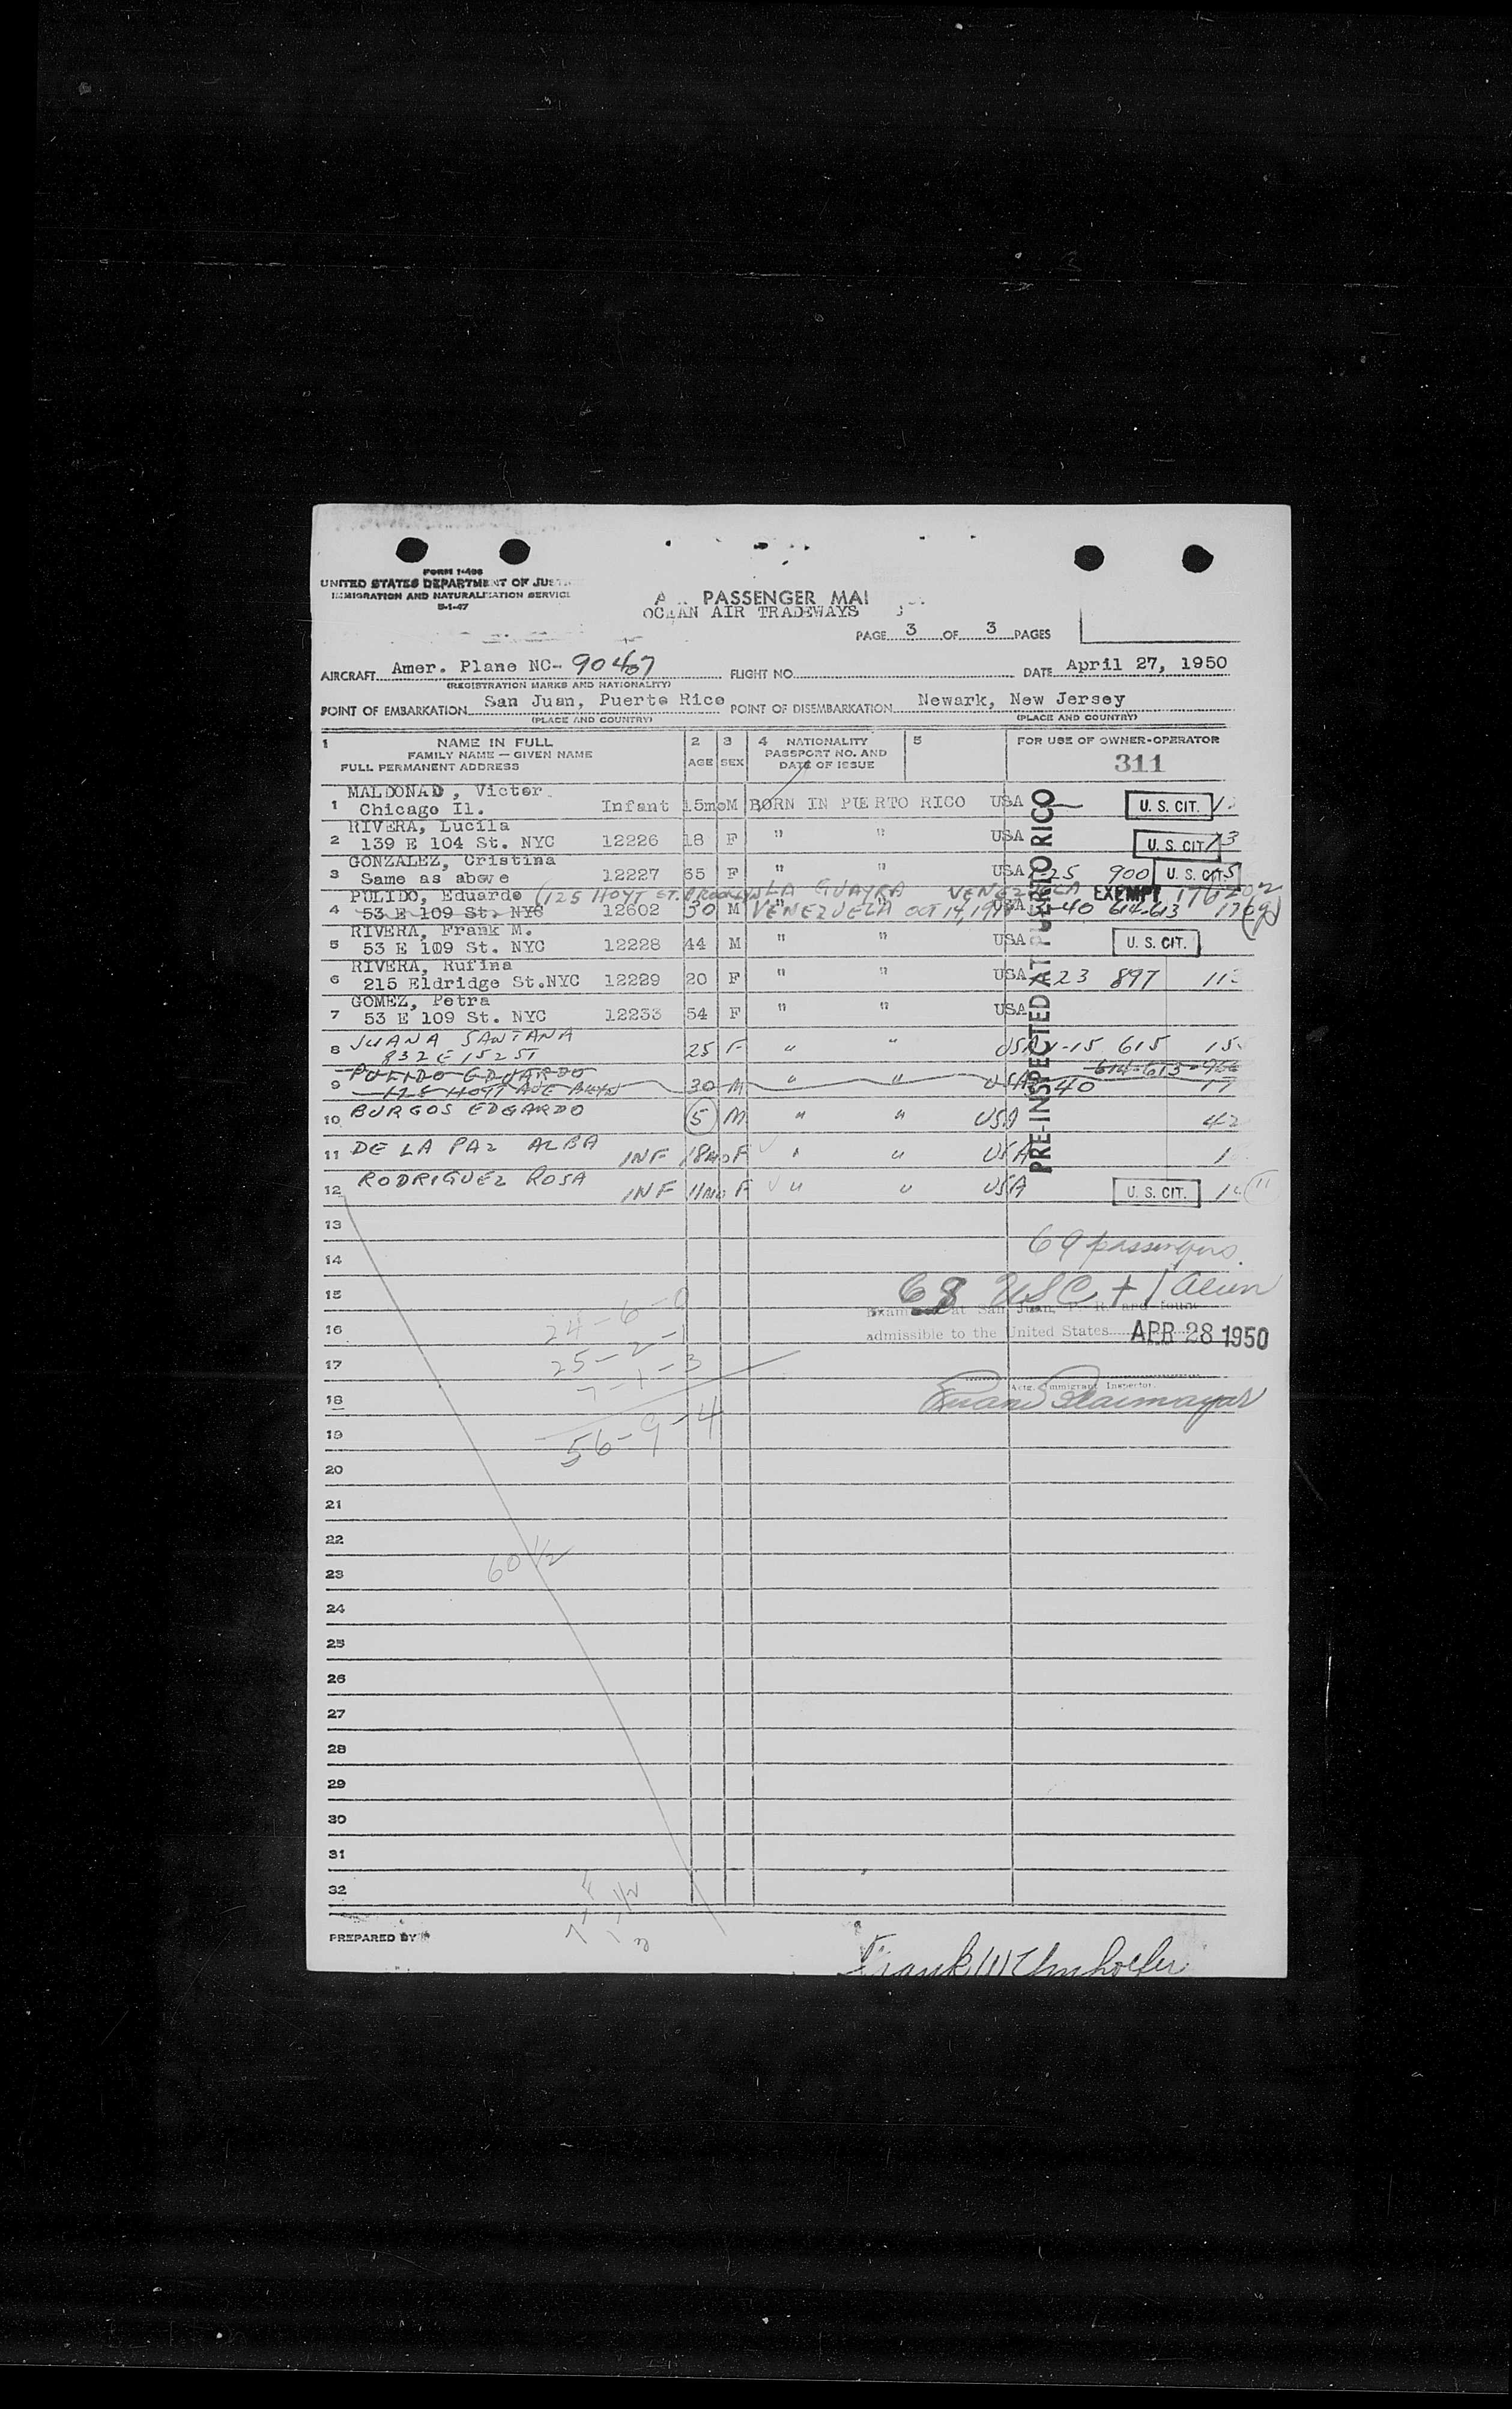 FORM I-466
UNITED STATES DEPARTMENT OF JUST
IMMIGRATION AND NATURALIZATION SERVICE
5-1-47
A PASSENGER MAI
OCEAN AIR TRADEWAYS
PAGE 3 OF 3 PAGES
AIRCRAFT Amer. Plane NC- 90467 FLIGHT NO. DATE April 27, 1950
(REGISTRATION MARKS AND NATIONALITY)
POINT OF EMBARKATION San Juan, Puerto Rico POINT OF DISEMBARKATION Newark, New Jersey
(PLACE AND COUNTRY) (PLACE AND COUNTRY)
1 NAME IN FULL 2 3 4 NATIONALITY 5 FOR USE OF OWNER-OPERATOR
FAMILY NAME — GIVEN NAME AGE SEX PASSPORT NO. AND
FULL PERMANENT ADDRESS DATE OF ISSUE 311
MALDONAD , Victor
1 Chicago Il. Infant 15mo M BORN IN PUERTO RICO USA U. S. CIT.
RIVERA, Lucila
2 139 E 104 St. NYC 12226 18 F " " USA U. S. CIT. 13
GONZALEZ, Cristina
3 Same as above 12227 65 F " " USA 25 900 U. S. CIT.
PULIDO, Eduardo (125 HOYT ST. BROOKLYN LA GUAYRA VENEZUELA EXEMPT
4 53 E 109 St. NYC 12602 30 M VENEZUELA OCT 14, USA 40 614-613
RIVERA, Frank M.
5 53 E 109 St. NYC 12228 44 M " " USA U. S. CIT.
RIVERA, Rufina
6 215 Eldridge St.NYC 12229 20 F " " USA 23 897
GOMEZ, Petra
7 53 E 109 St. NYC 12233 54 F " " USA
8 JUANA SANTANA
832 E 152 ST 25 F " " USA 1-15 615 15
PULIDO EDUARDO 614-613
9 125 HOYT AVE BKLYN 30 M " " USA 40 17
10 BURGOS EDGARDO 5 M " " USA 42
11 DE LA PAZ ALBA INF 18mo F " " USA 1
12 RODRIGUEZ ROSA INF 11mo F " " USA U. S. CIT. 11
PRE-INSPECTED AT PUERTO RICO
13
14 69 passengers
15 68 USC + 1 Alien
Examined at San Juan, P. R. and found
16 24-6-0
admissible to the United States APR 28 1950
17 25-2-1
7-1-3
Actg. Immigrant Inspector.
18
19 56-9-4
20
21
22
60 1/2
23
24
25
26
27
28
29
30
31
32
PREPARED BY